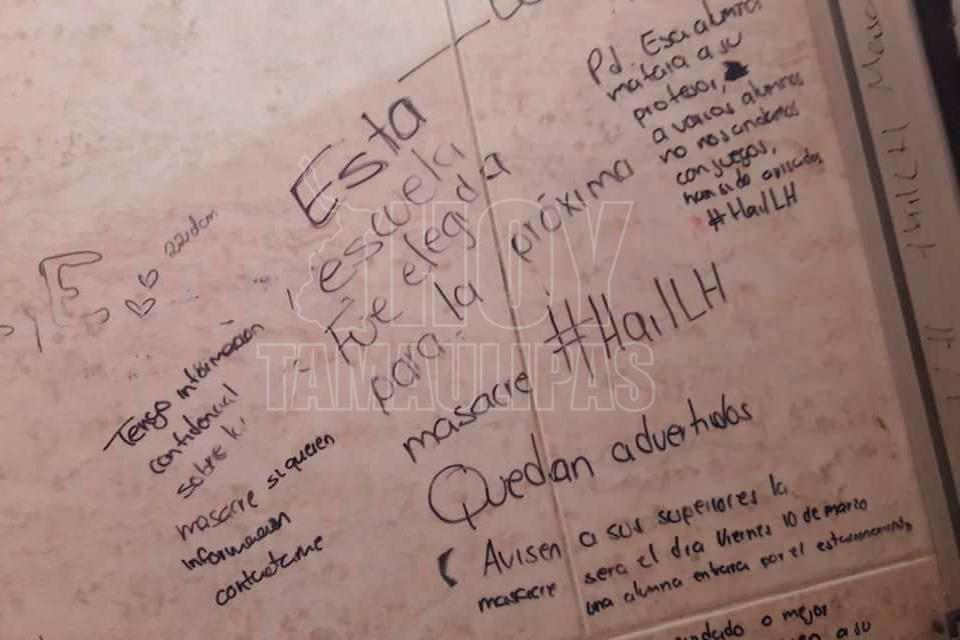 Esta
escuela
Fúe elegida
para la próxima
masacre #HailLH
Quedan advertidos
Avisen a sus superiores la
masacre sera el dia Viernes 10 de marzo
una alumna entrara por el estacionamiento
o mejor
a su
Pd: Esa alumna
matara a su
profesor,
a varios alumnos
no nos andamos
con juegos,
han sido avisados
#HailLH
Tengo información
confidencial
sobre
masacre si quieren
información
contactame
HOY
TAMAULIPAS